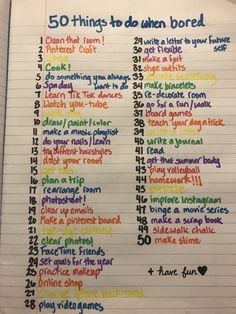 50 things to do when bored
1 Clean that room!
2 Pinterest Craft
3
4 Cook!
5 do something you always want to do
6 Spa day
7 Learn Tik Tok dances
8 Watch you-tube
9
10 draw/paint/color
11 make a music playlist
12 do your nails/learn
13 try different hairstyles
14 dust your room
15 get
16 plan a trip
17 rearrange room
18 photoshoot!
19 clear up emails
20 Make a pinterest board
21 tye-dye clothes
22 clear photos!
23 FaceTime friends
24 set goals for the year
25 practice makeup
26 Online shop
27 change phone background
28 play video games
29 write a letter to your future self
30 get flexible
31 make a fort
32 style outfits
33 donate
34 make bracelets
35 re-decorate room
36 go for a run/walk
37 board games
38 teach your dog a trick
39 write
40 write a journal
41 read
42 get that summer body
43 play volleyball
44 homework!!!
45
46 improve Instagram
47 binge a movie series
48 make a scrap book
49 sidewalk chalk
50 make slime
+ have fun ♥